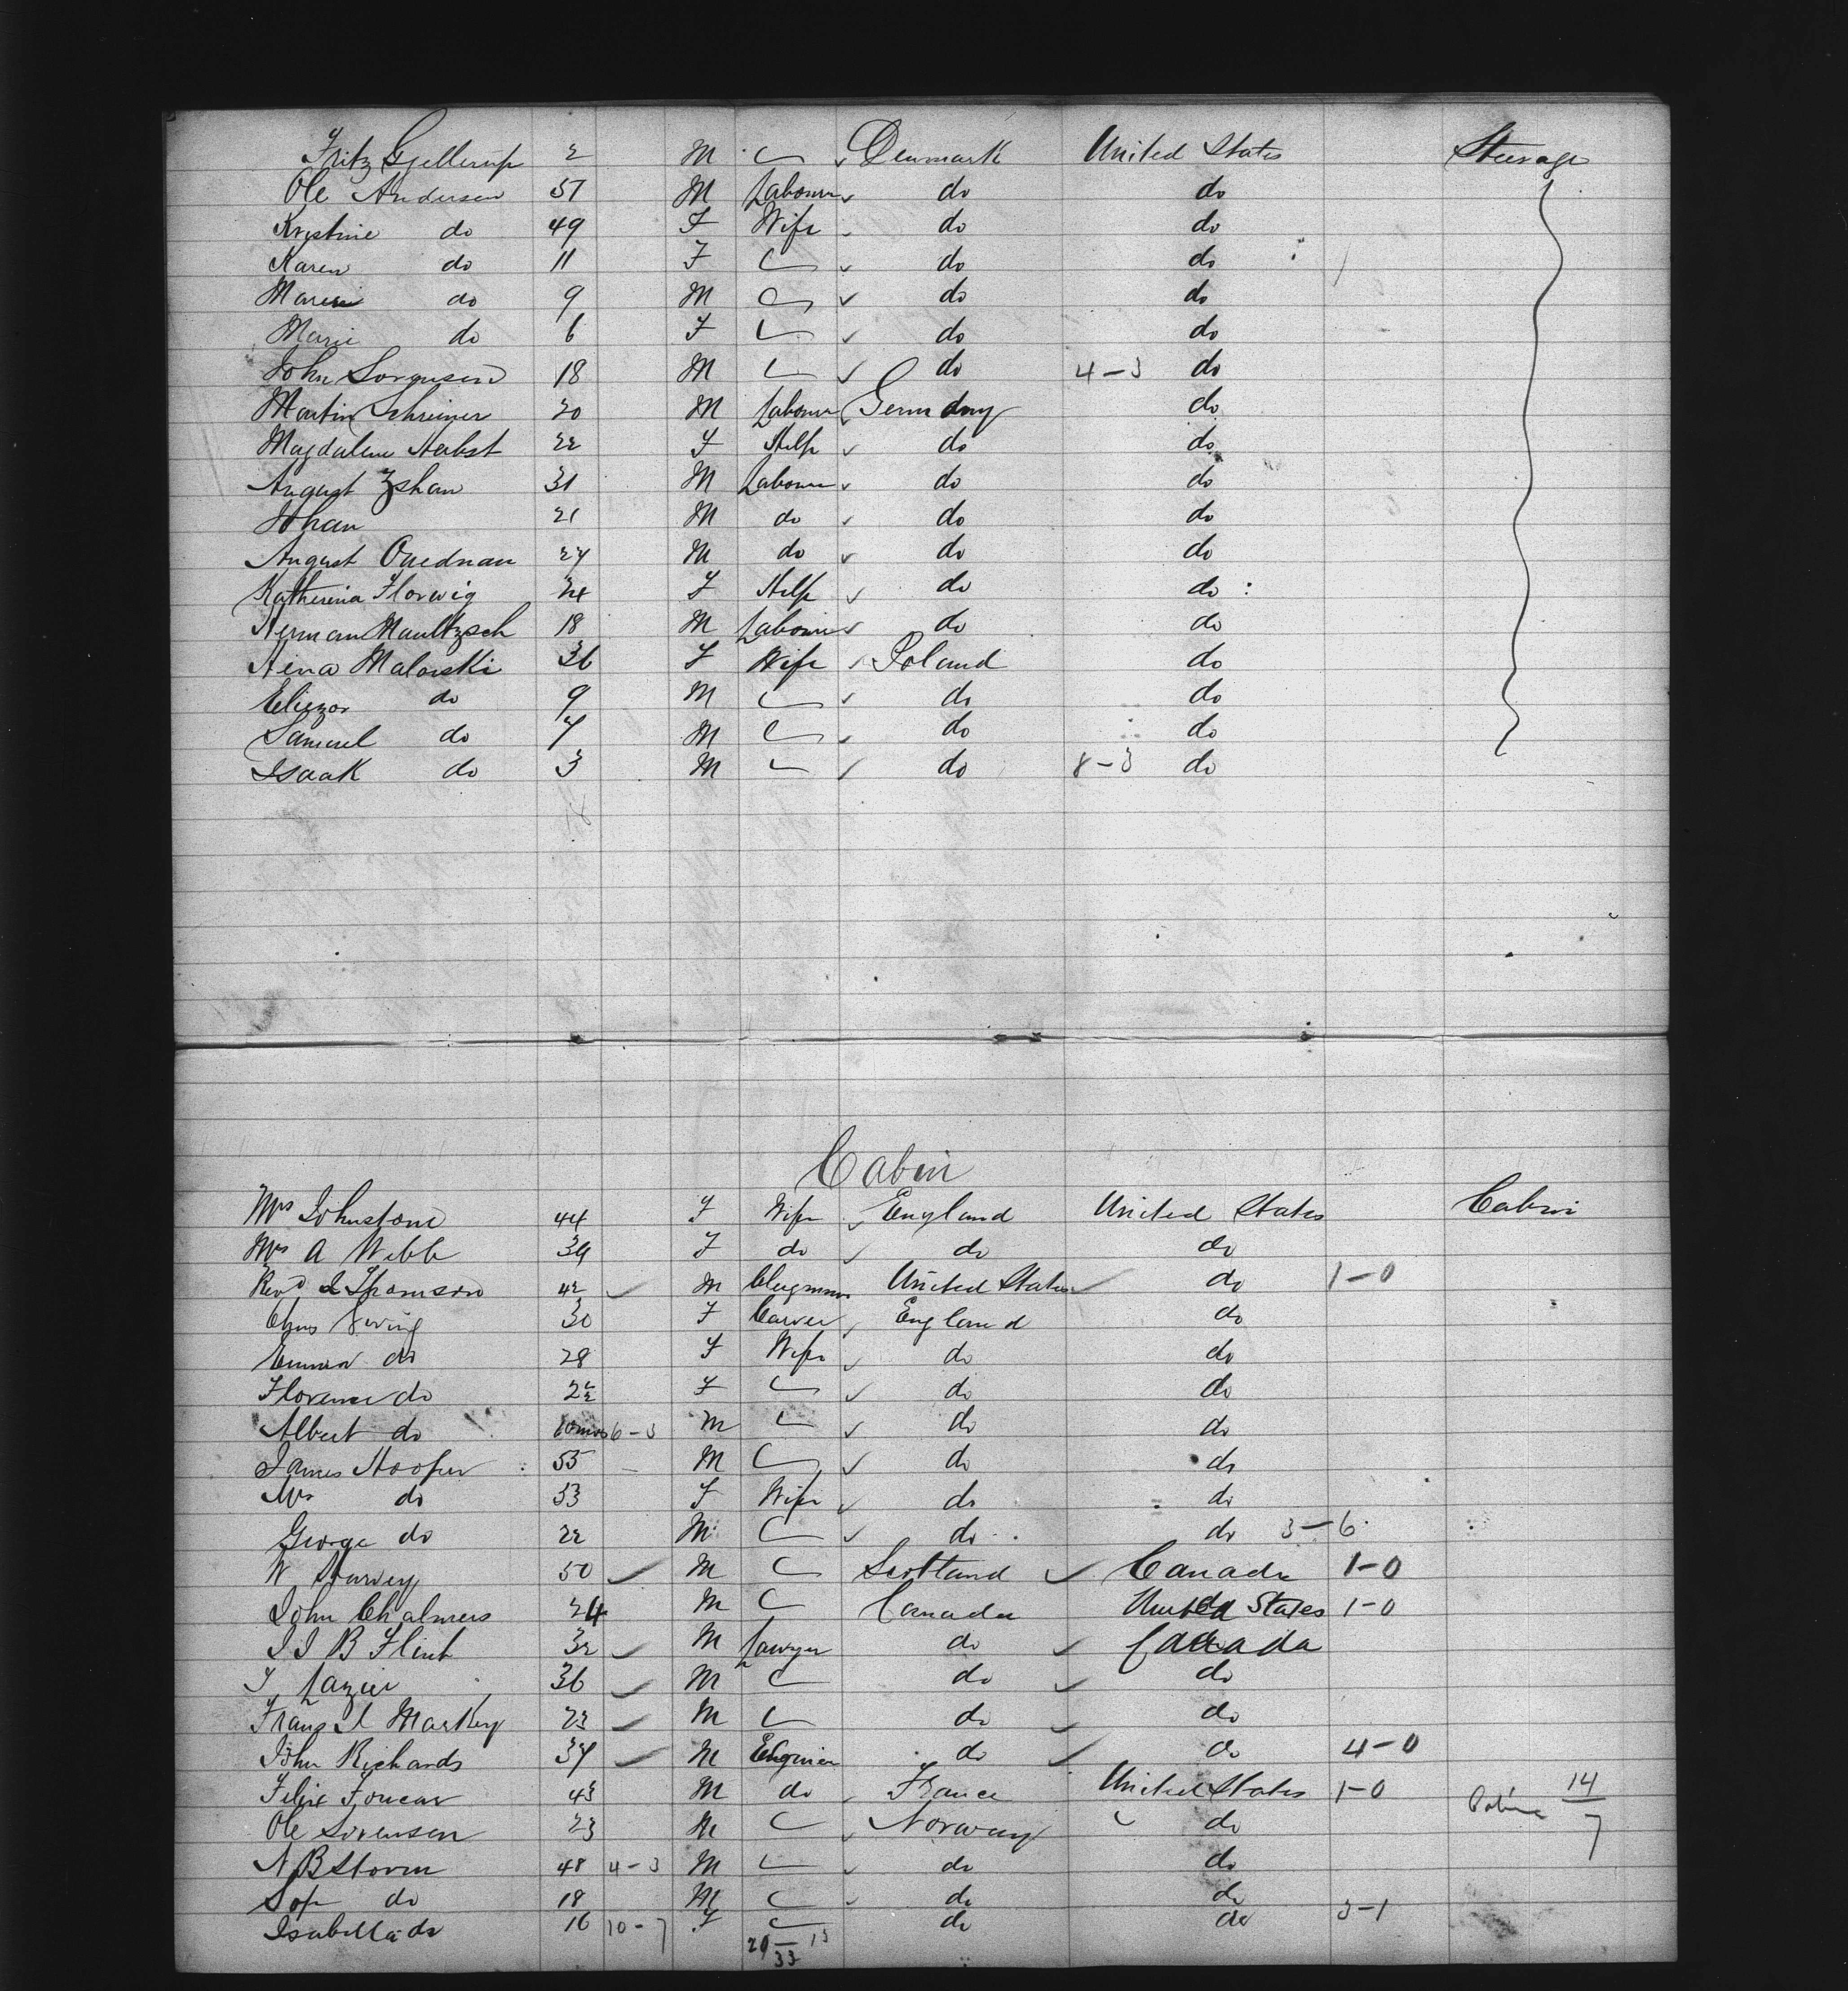 Fritz Gjellerup 2 M Denmark United States Steerage
Ole Andersen 51 M Labourer do do
Kristine do 49 F Wife do do
Karen do 11 F do do
do 9 M do do
Marie do 6 F do do
John Sorensen 18 M do 4-3 do
Martin Schreiner 20 M Labourer Germany do
Magdalene Herbst 22 F Help do do
August Zshau 31 M Labourer do do
Johan 21 M do do do
August Quednau 27 M do do do
Katherina Florwig 24 F Help do do
Herman Maultzsch 18 M Labourer do do
Hena Malowski 36 F Wife Poland do
Eliezor do 9 M do do
Samuel do 7 M do do
Isaak do 3 M do 8-3 do
Cabin
Mrs Johnstone 44 F Wife England United States Cabin
Mrs A Webb 39 F do do do
Revd Thomson 42 M Clergyman United States do 1-0
Chas 30 F Carver England do
Emma do 28 F Wife do do
Florence do 2 F do do
Albert do 10 mos 6-3 M do do
James Hooper 55 M do do
Mrs do 53 F Wife do do
George do 22 M do do 3-6
W Harvey 50 M Scotland Canada 1-0
John Chalmers 24 M Canada United States 1-0
J J B Flint 32 M Lawyer do Canada
T Lazier 36 M do do
Frans J Markey 23 M do do
John Richards 37 M Engineer do do 4-0
Felix Foucar 43 M do France United States 1-0 Cabin 14
Ole Sorensen 23 M Norway do 7
N B Storm 48 4-3 M do do
do 18 M do do
Isabella do 16 10-7 F do do 3-1
20 13
33